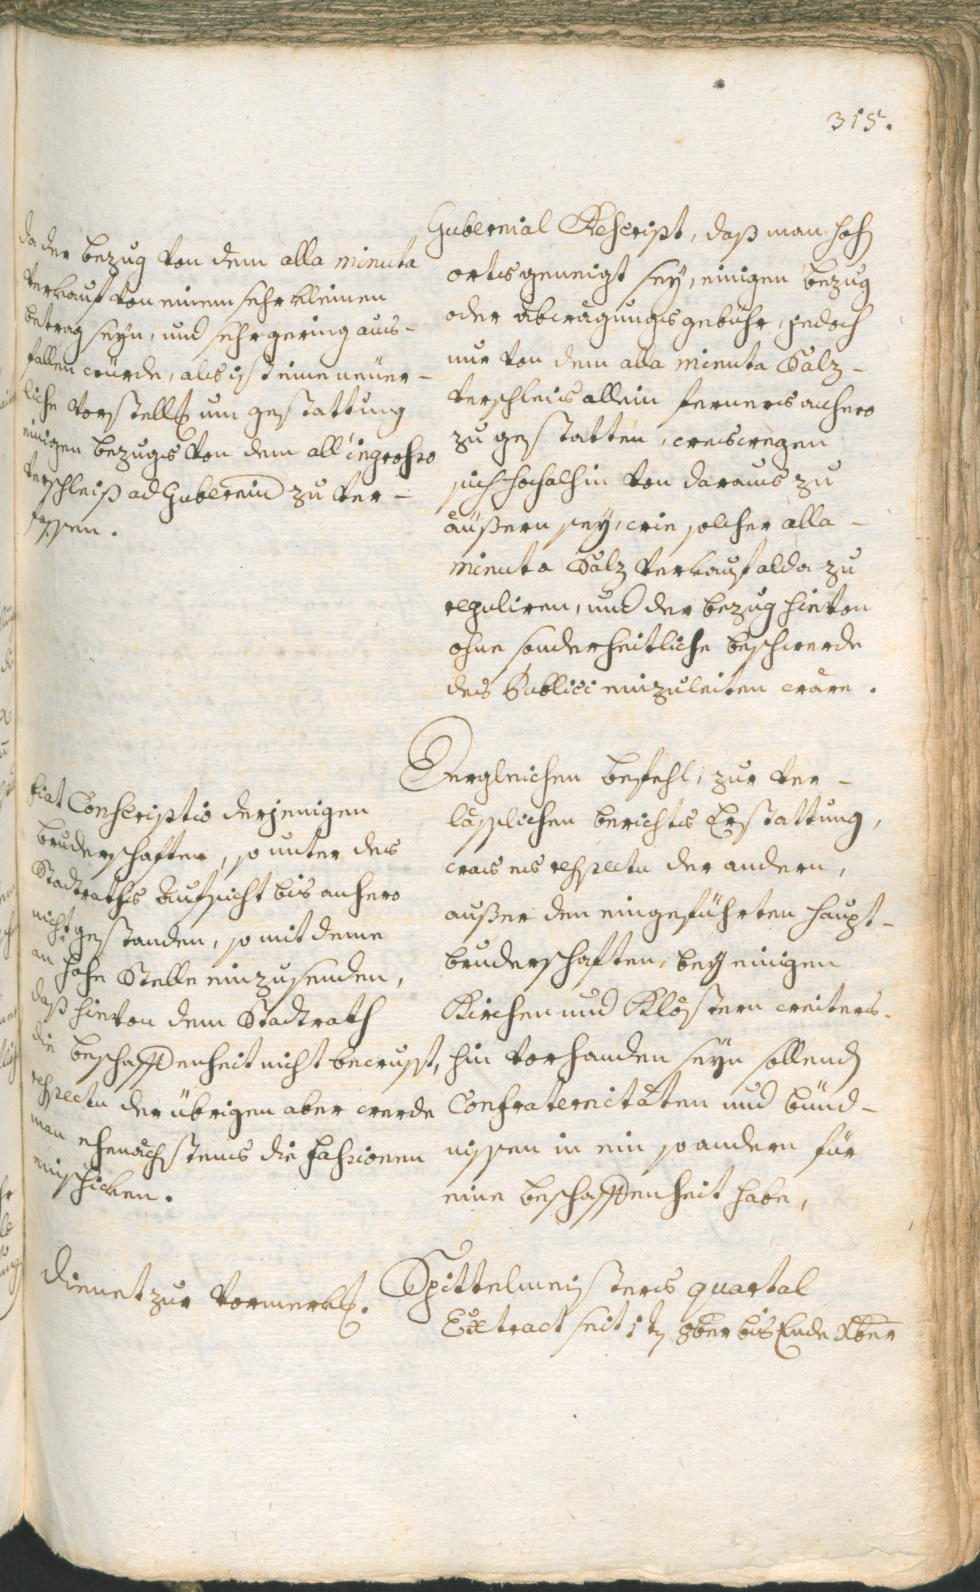 315.
da der bezug von dem alla minuta
verkauf von einem sehr kleinen
betrag seyn, und sehr gering aus-
fallen würde, als ist eine neüer-
liche vorstellg um gestattung
einigen bezugs von dem all'ingrosso
verschleiß ad Gubernium zu ver-
fassen.
Gubernial Rescript, daß man hoh
orts geneigt sey, einigen bezug
oder abwägungs gebühr, jedoch
nur von dem alla minuta Salz-
verschleis allein ferners anhero
zu gestatten, weswegen
sich hochalhin von daraus zu
äüßern sey, wie solcher alla-
minuta Salz verkauf alda zu
reguliren, und der bezug hievon
ohne sonderheitliche beschwerde
des Publici einzuleiten wäre.
fiat Conscriptio derjenigen
bruderschaften, so unter des
Stadtraths Aufsicht bis anhero
nicht gestanden, so mit deme
an hohe Stelle einzusenden,
daß hievon dem Stadtrath
die beschaffenheit nicht bewusst,
respectu der übrigen aber werde
man ehenächstens die fassionen
einschicken.
Dergleichen befehl, zur ver-
lässlichen berichts Erstattung,
was es respectu der andern,
außer den eingeführten haupt-
bruderschaften, bey einigen
Kirchen und Klöstern weiters-
hin vorhanden seyn sollend
Confraternitäten und bünd-
nissen in ein so andern für
eine beschaffenheit habe,
dienet zur vormerkg.
Spittelmeisters quartal
Extract seit 1t 8ber bis Ende Xber